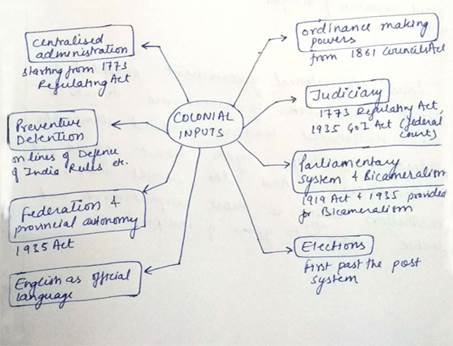 COLONIAL
INPUTS
Centralised
administration
starting from 1773
Regulating Act
Preventive
Detention
on lines of Defence
of India Rules etc.
Federation &
provincial autonomy
1935 Act
English as official
language
Ordinance making
powers
from 1861 Councils Act
Judiciary
1773 Regulating Act,
1935 GoI Act (federal
court)
Parliamentary
System & Bicameralism
1919 Act & 1935 provided
for Bicameralism
Elections
first past the post
system